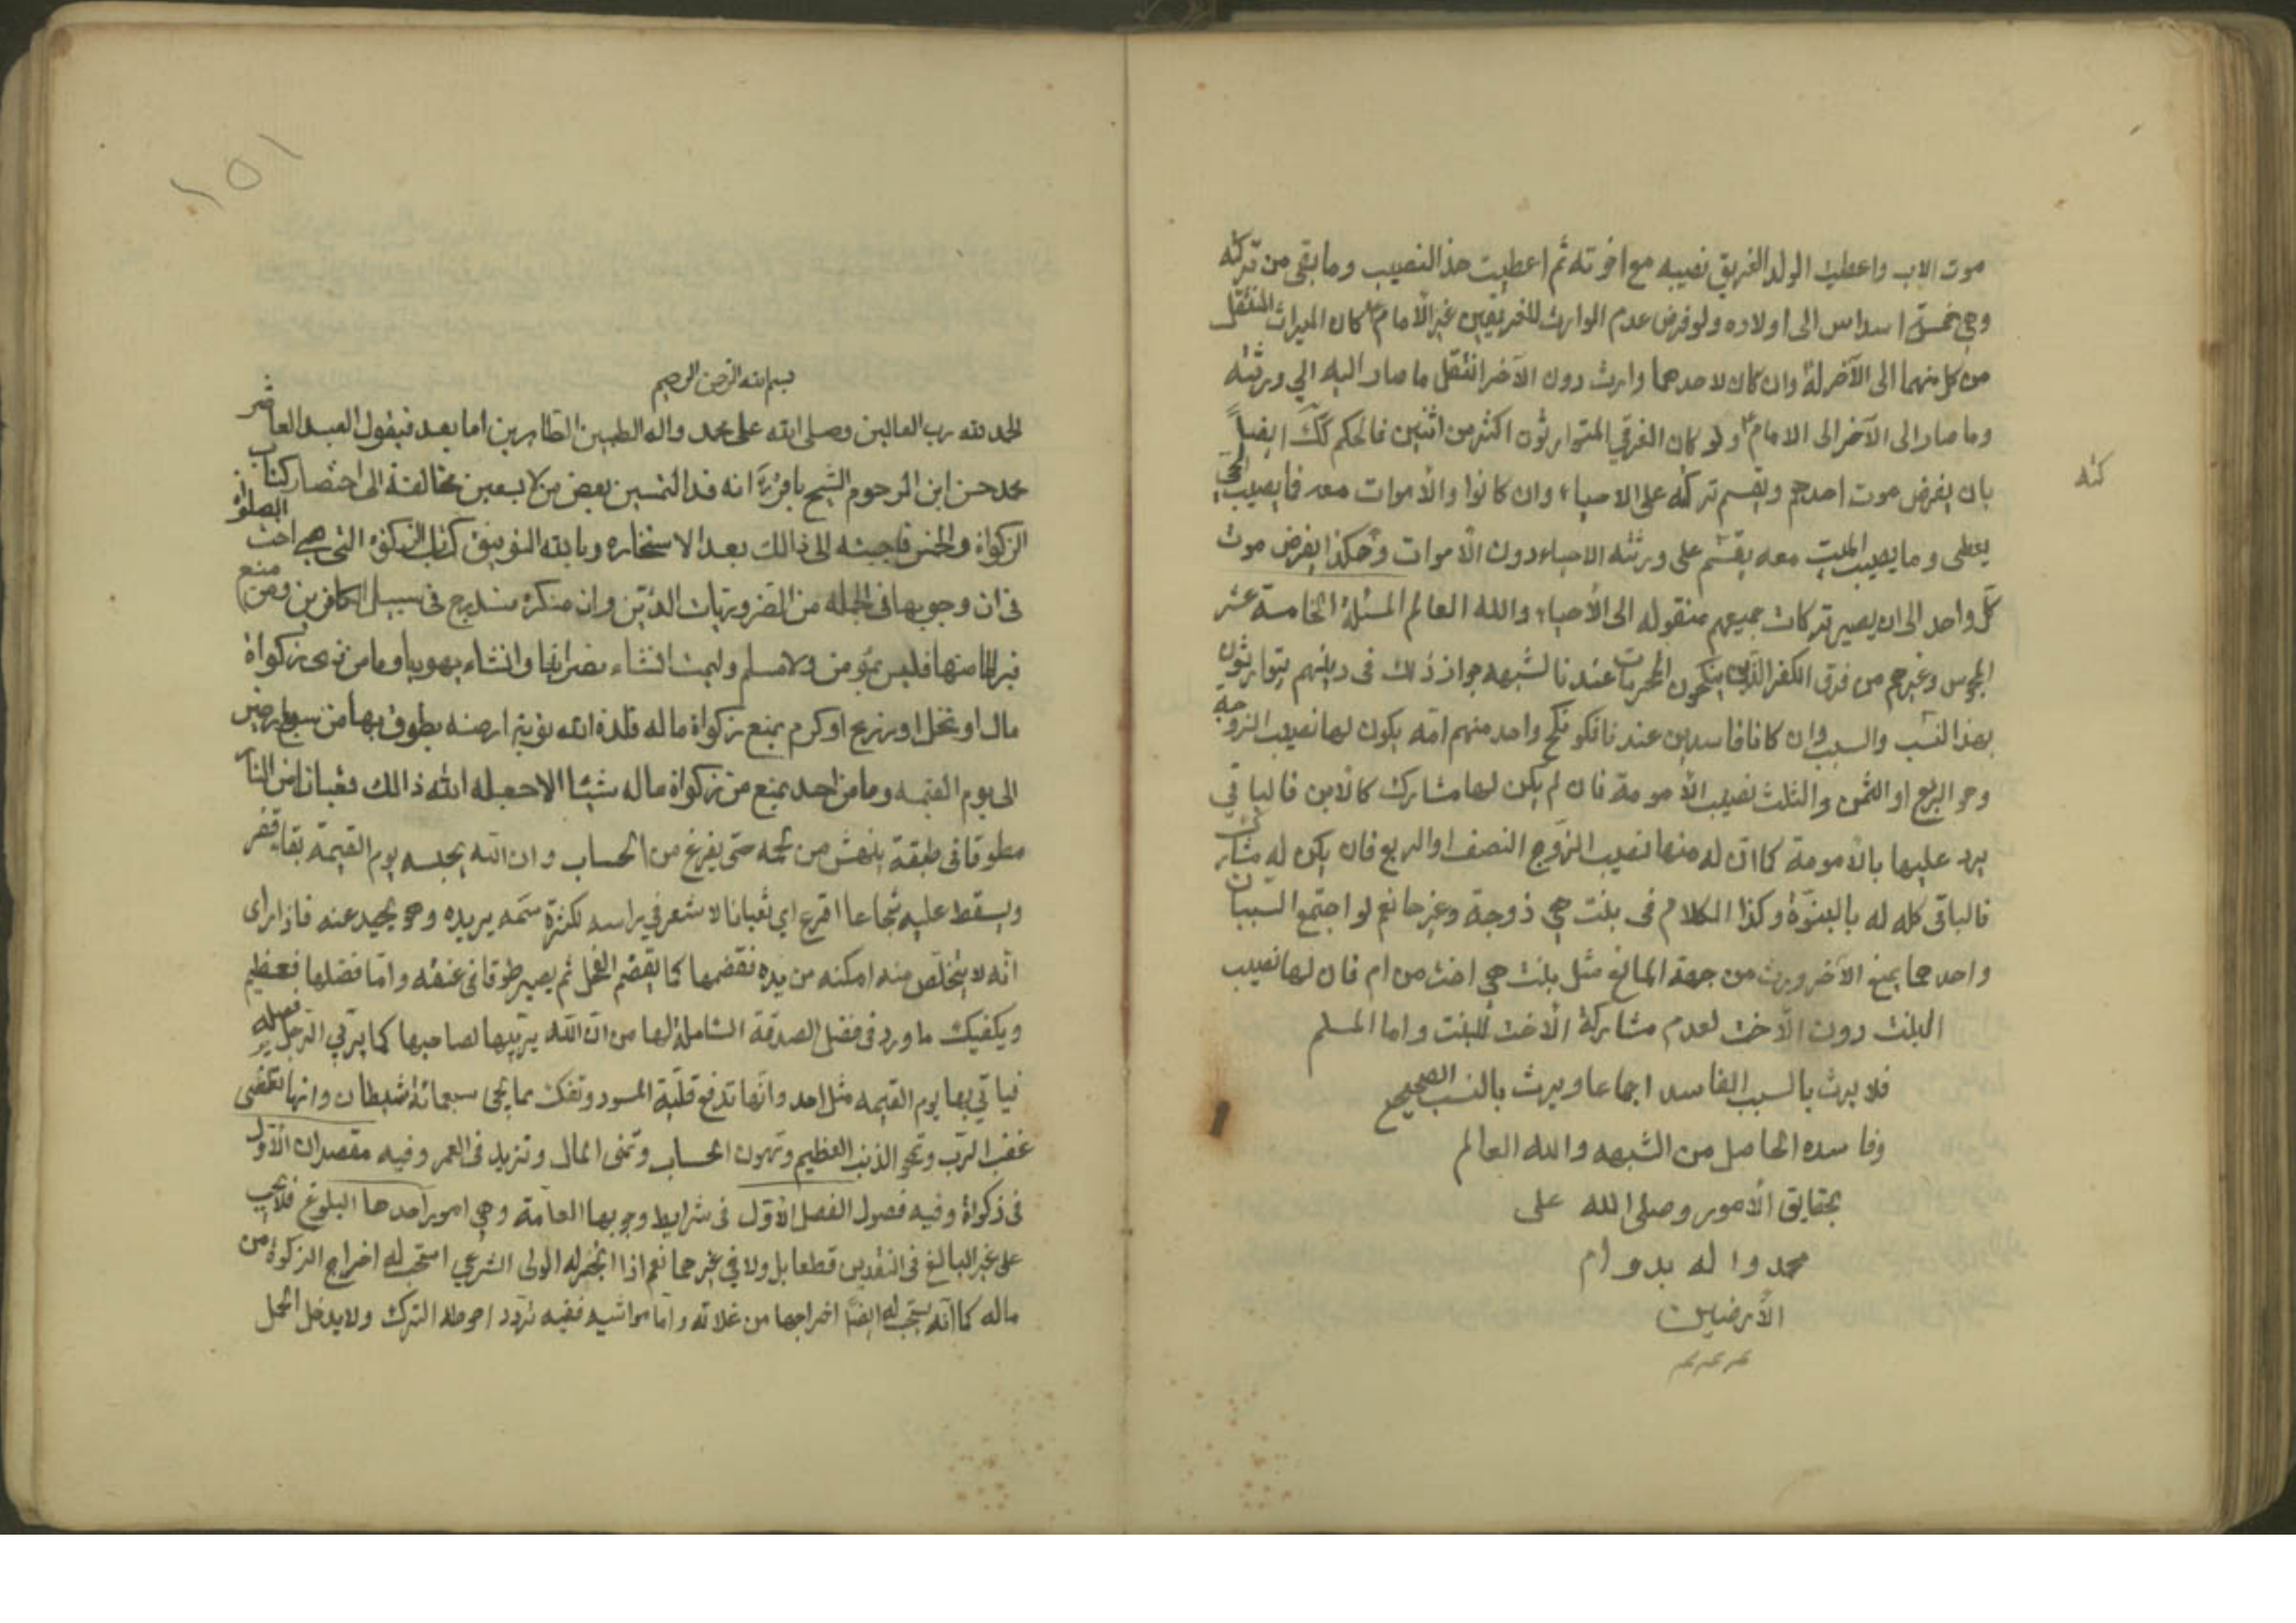 موت الاب واعطيت الولد الغريق نصيبه مع اخوته ثم اعطيت هذا النصيب وما بقى من تركته
وهي خمسة اسداس الى اولاده ولو فرض عدم الوارث للغريقين غير الامام ع كان الميراث المنتقل
من كل منهما الى الآخر له وان كان لاحدهما وارث دون الآخر انتقل ما صار اليه الى ورثته
وما صار الى الآخر الى الامام ع ولو كان الغرقى المتوارثون اكثر من اثنين فالحكم كك ايضاً
بان يفرض موت احدهم ويقسم تركته على الاحياء وان كانوا والاموات معه فما يصيب الحي
كته
يعطى وما يصيب الميت معه يقسم على ورثته الاحياء دون الاموات وهكذا يفرض موت
كل واحد الى ان يصير تركات جميعهم منقوله الى الأحياء والله العالم المسئلة الخامسة عشر
المجوس وغيرهم من فرق الكفر الذين ينكحون المحرمات عندنا لشبهه جواز ذلك في دينهم يتوارثون
بهذا النسب والسبب وان كانا فاسدين عندنا فلو نكح واحد منهم امه يكون لها نصيب الزوجة
وهو الربع او الثمن والثلث نصيب الأمومة فان لم يكن لها مشارك كالابن فالباقي
يرد عليها بالأمومة كما ان له منها نصيب الزوج النصف او الربع فان يكن له مشارك
فالباقى كله له بالبنوّة وكذا الكلام في بنت هي زوجة وغيرها نعم لو اجتمع السببان
واحدهما يمنع الآخر ورث من جهة المانع مثل بنت هي اخت من ام فان لها نصيب
البنت دون الأخت لعدم مشاركة الاخت للبنت واما المسلم
فلا يرث بالسبب الفاسد اجماعا ويرث بالنسب الصحيح
وفاسده الحاصل من الشبهه والله العالم
بحقايق الأمور وصلى الله على
محمد واله بدوام
الأرضين
١٥١
بسم الله الرحمن الرحيم
الحمد لله رب العالمين وصلى الله على محمد واله الطيبين الطاهرين اما بعد فيقول العبد العاثر
محمد حسن ابن المرحوم الشيخ باقر ره انه قد التمس بعض من لا يسعني مخالفته الى اختصار كتاب
الزكواة والخمس فاجبته الى ذالك بعد الاستخاره وبالله التوفيق كتاب الزكوة التي هي اخت الصلوة
في ان وجوبها في الجمله من الضروريات الدين وان منكره مندرج في سبيل الكافرين ومن منع
قيراطا منها فليس بمؤمن ولا مسلم وليمت انشاء نصرانيا وانشاء يهوديا وما من ذى زكواة
مال او نخل او زرع او كرم يمنع زكواة ماله قلده الله تربة ارضه يطوف بها من سبع ارضين
الى يوم القيمه وما من احد يمنع من زكواة ماله شيئا الا جعله الله ذالك ثعبانا من النار
مطوقا في طبقة ينهش من لحمه حتى يفرغ من الحساب وان الله يحبسه يوم القيمة بقاع قفر
ويسقط عليه شجاعا اقرع اي ثعبانا لا شعر في راسه لكثرة سمه يريده وهو يحيد عنه فاذا راى
انه لا يتخلص منه امكنه من يده فقضمها كما يقضم الفحل ثم يصير طوقا في عنقه واما فضلها فعظيم
ويكفيك ما ورد في فضل الصدقة الشاملة لها من ان الله يربيها لصاحبها كما يربي الرجل فصيله
فياتي بها يوم القيمه مثل احد وانها تدفع وتفك سبعمائة شيطان وانها تطفى
غضب الرب وتمحو الذنب العظيم وتهون الحساب وتنمى المال وتزيد في العمر وفيه مقصدان الأول
في زكواة وفيه فصول الفصل الأول في شرايط وجوبها العامة وهي امور احدها البلوغ فلا يجب
على غير البالغ في النقدين قطعا بل ولا في غيرهما نعم اذا اتجر له الولى الشرعي استحب له اخراج الزكوة من
ماله كما انه يستحب له ايضا اخراجها من غلاته واما مواشيه ففيه تردد احوطه الترك ولا يدخل الحمل